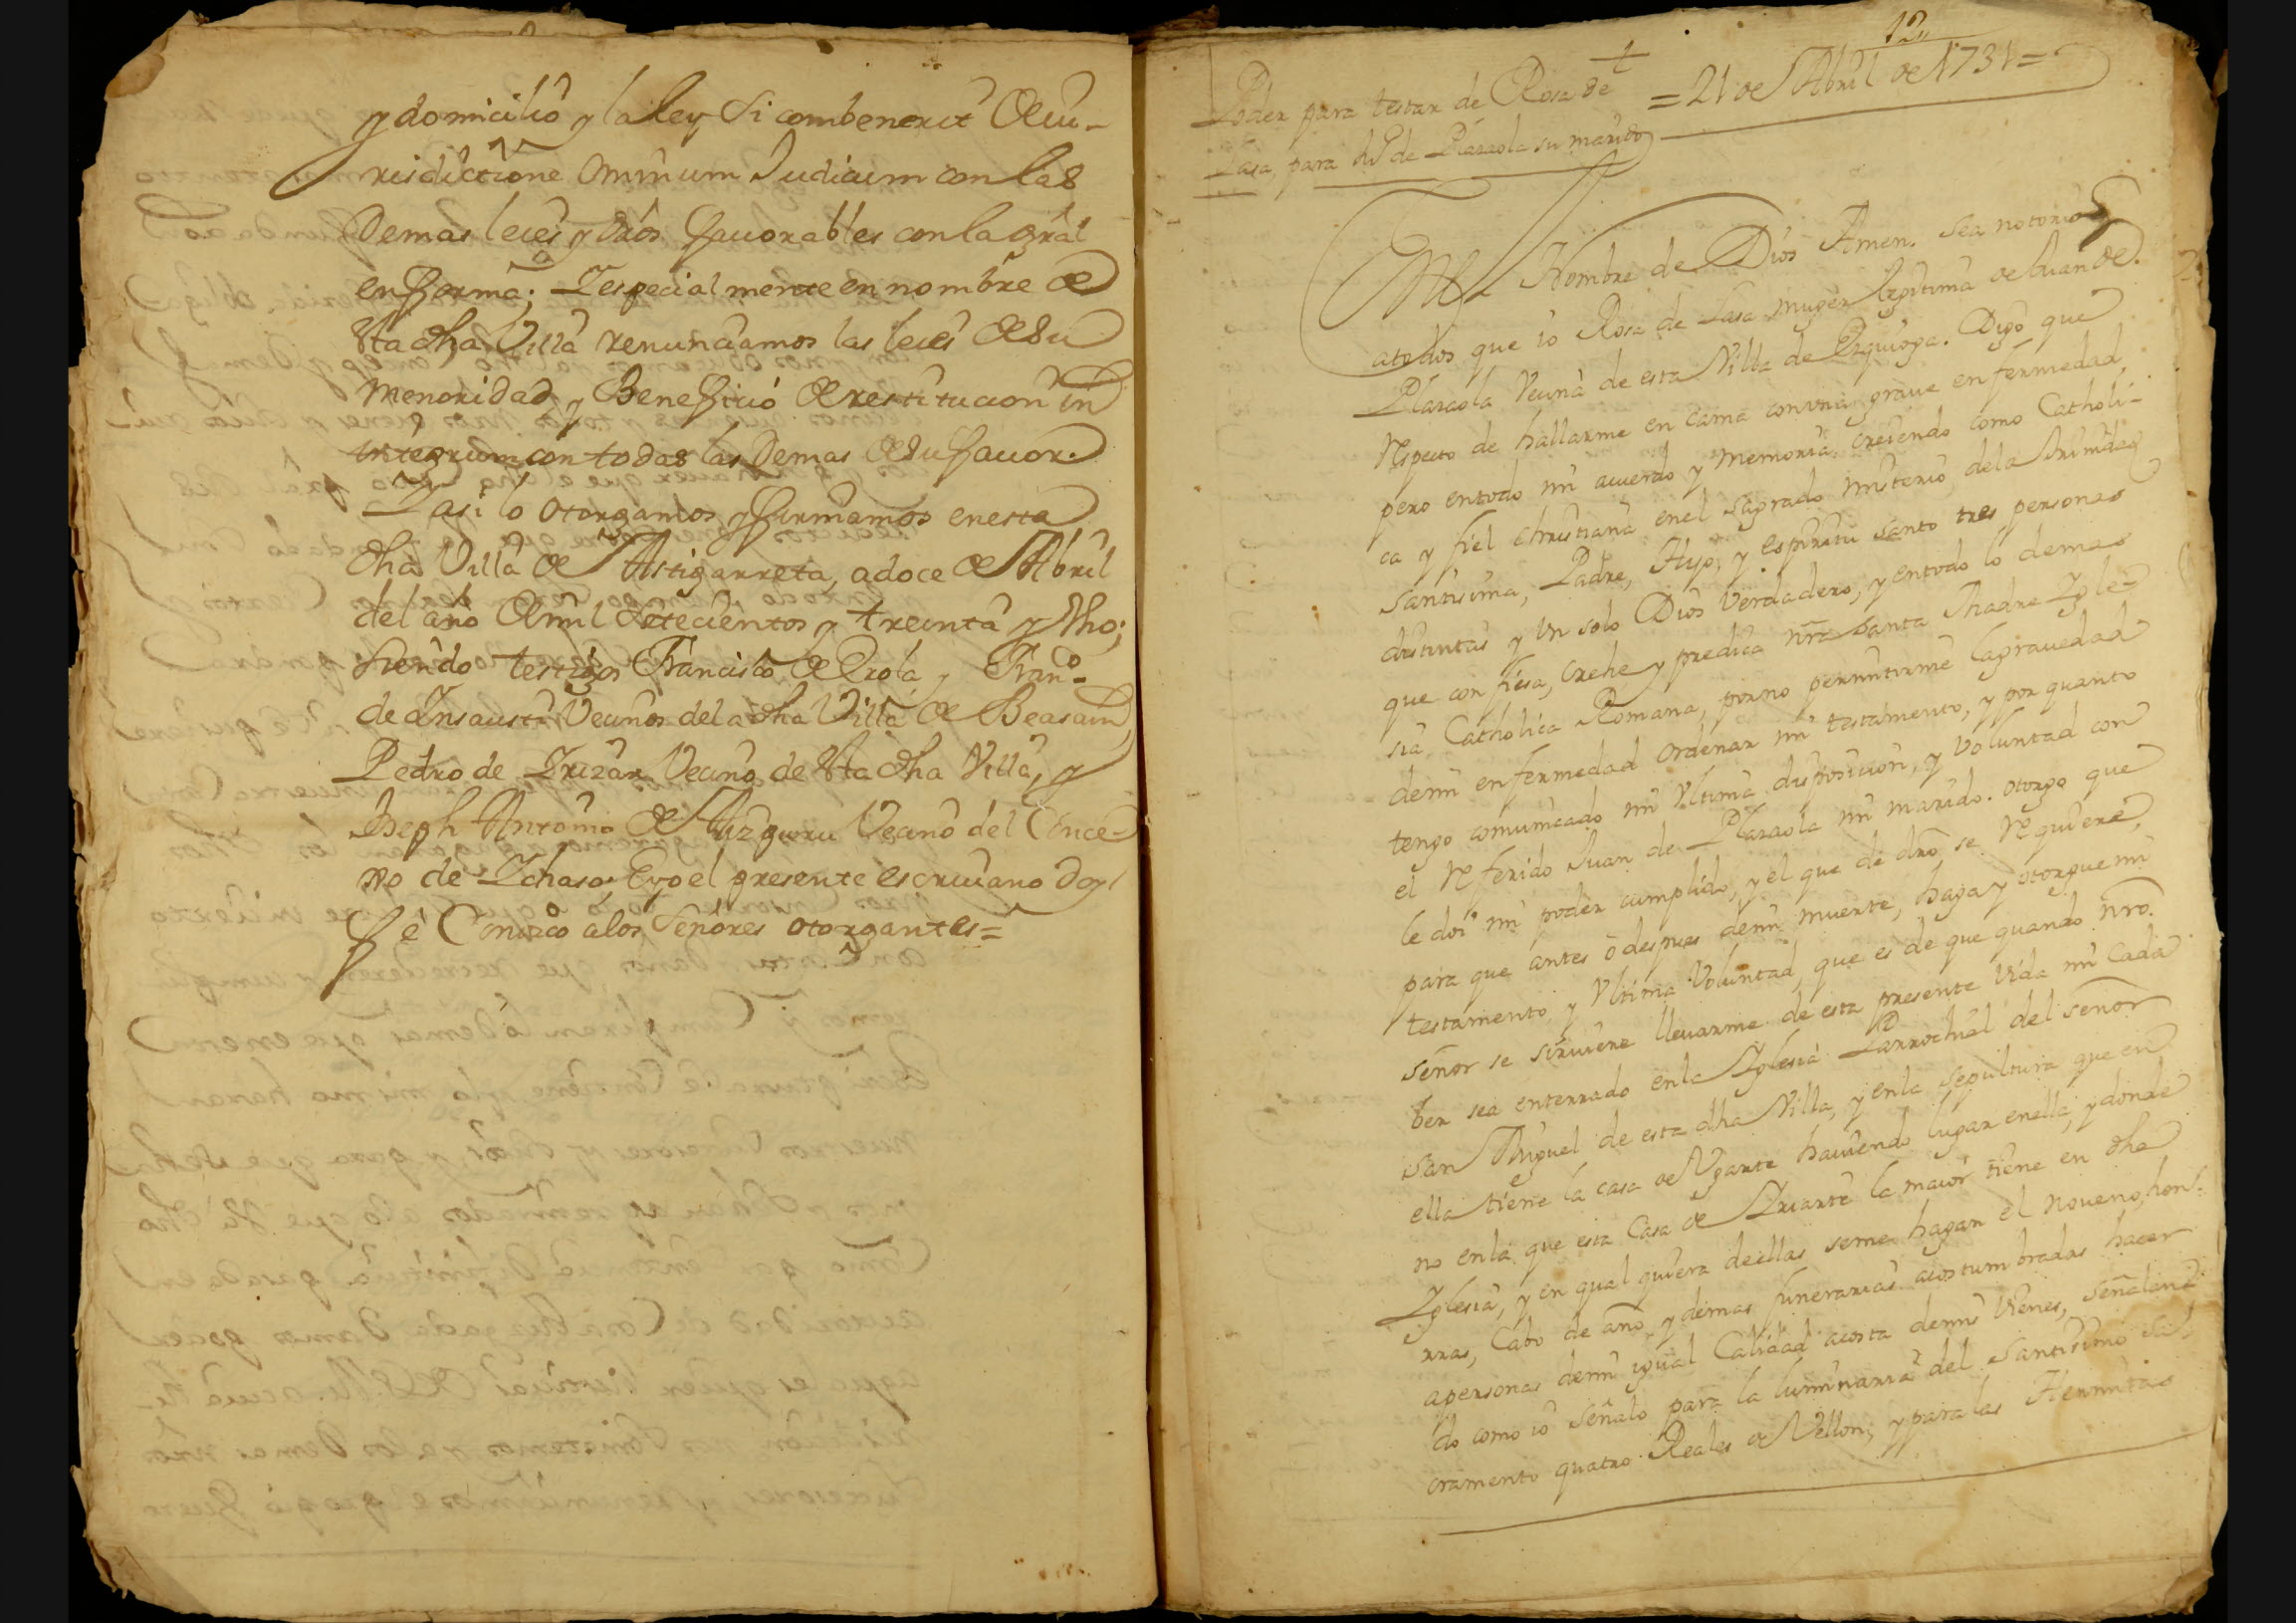 y domicilio y la ley Si combenerit de iu-
risdictione omnium Judicum con las
Demas leies y dros favorables con la gral
en forma; Y especialmente en nombre de
sta dha Villa renunciamos las leies de su
menoridad y Beneficio de restitucion in
integrum con todas las Demas de su favor.
Y asi lo otorgamos y firmamos en esta
dha Villa de Astigarreta, a doce de Abril
del año de mil setecientos y treinta y
Siendo testigos Francisco de y Franco
de Insausti Vecinos de la dha Villa de Beasain,
Pedro de Irizar Vecino de sta dha Villa, y
Joseph Antonio de Vecino del Conce-
no de Ichaso. E yo el presente escrivano doy
fé Conozco a los Señores otorgantes=
12
Poder para testar de Rosa de = 21 de Abril de 1731 =
Lasa, para Jn de Plazaola su marido
En el Nombre de Dios Amen. Sea notorio
a todos que io Rosa de Lasa muger lexitima de Juan de
Plazaola Vecina de esta Villa de Ezquioga. Digo que
respecto de hallarme en cama con una grave enfermedad,
pero en todo mi acuerdo y memoria, creiendo como Catholi-
ca y fiel christiana en el sagrado misterio de la trinidad
Santisima, Padre, Hijo, y espiritu santo tres personas
distintas y un solo Dios Verdadero, y en todo lo demas
que confiesa, crehe y predica nra Santa Madre Ygle-
sia Catholica Romana, por no permitirme la gravedad
de mi enfermedad ordenar mi testamento, y por quanto
tengo comunicado mi Ultima disposicion, y Voluntad con
el referido Juan de Plazaola mi marido. otorgo que
le doi mi poder cumplido, y el que de dro se requiere,
para que antes ó despues de mi muerte, haga y otorgue mi
testamento, y Ultima Voluntad, que es de que quando nro.
Señor se sirviere llevarme de esta presente Vida mi Cada
ber sea enterrado en la Yglesia Parrochial del señor
San Miguel de esta dha Villa, y en la sepultura que en
ella tiene la casa de Ugarte haviendo lugar en ella, y donde
no en la que esta Casa de Yriarte la maior tiene en dha
Yglesia, y en qual quiera de ellas se me hagan el noveno, hon-
rras, Cabo de año y demas funerarias acostumbradas hacer
a personas de mi igual Calidad a costa de mis Vienes, señalan
do como io señalo para la luminaria del Santisimo Sa-
cramento quatro Reales de Vellon; y para las Hermitas